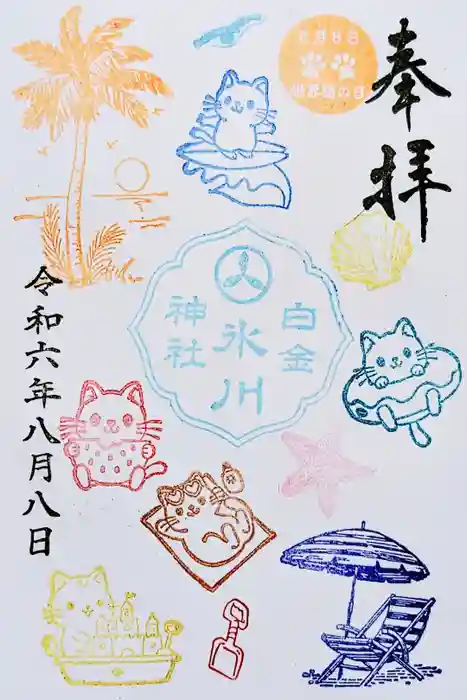 奉拝
8月8日
世界猫の日
白金
氷川
神社
令和六年八月八日